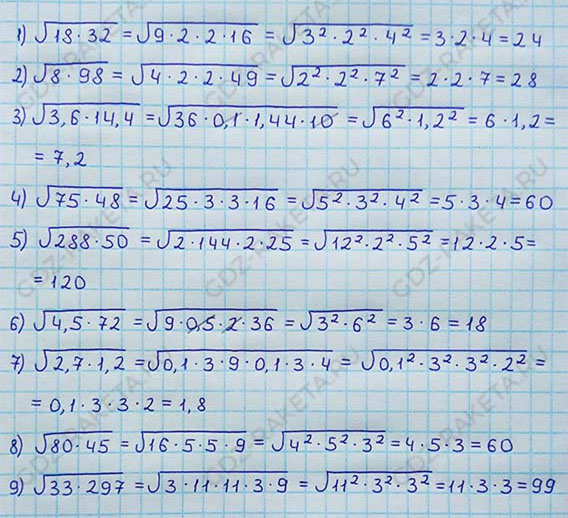 1) √18·32 = √9·2·2·16 = √3²·2²·4² = 3·2·4 = 24
2) √8·98 = √4·2·2·49 = √2²·2²·7² = 2·2·7 = 28
3) √3,6·14,4 = √36·0,1·1,44·10 = √6²·1,2² = 6·1,2 =
= 7,2
4) √75·48 = √25·3·3·16 = √5²·3²·4² = 5·3·4 = 60
5) √288·50 = √2·144·2·25 = √12²·2²·5² = 12·2·5 =
= 120
6) √4,5·72 = √9·0,5·2·36 = √3²·6² = 3·6 = 18
7) √2,7·1,2 = √0,1·3·9·0,1·3·4 = √0,1²·3²·3²·2² =
= 0,1·3·3·2 = 1,8
8) √80·45 = √16·5·5·9 = √4²·5²·3² = 4·5·3 = 60
9) √33·297 = √3·11·11·3·9 = √11²·3²·3² = 11·3·3 = 99
GDZ-RAKETA.RU